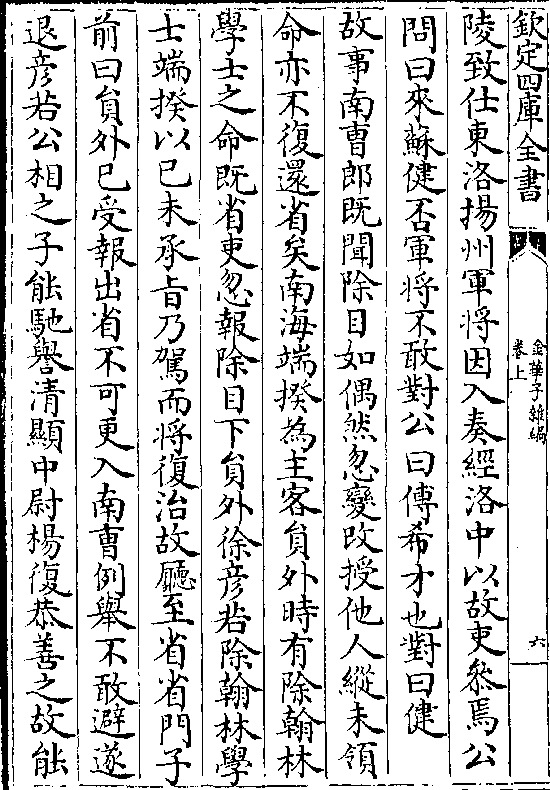 欽定四庫全書
金華子雜編
卷上
六
陵致仕東洛揚州軍將因入奏經洛中以故吏叅焉公
問曰來蘇健否軍將不敢對公曰傅希才也對曰健
故事南曹郎既聞除目如偶然忽變改授他人縱未領
命亦不復還省矣南海端揆為主客員外時有除翰林
學士之命既省吏忽報除目下員外徐彦若除翰林學
士端揆以已未承旨乃駕而将復治故廳至省省門子
前曰員外已受報出省不可更入南曹例舉不敢避遂
退彦若公相之子能馳譽清顯中尉楊復恭善之故能